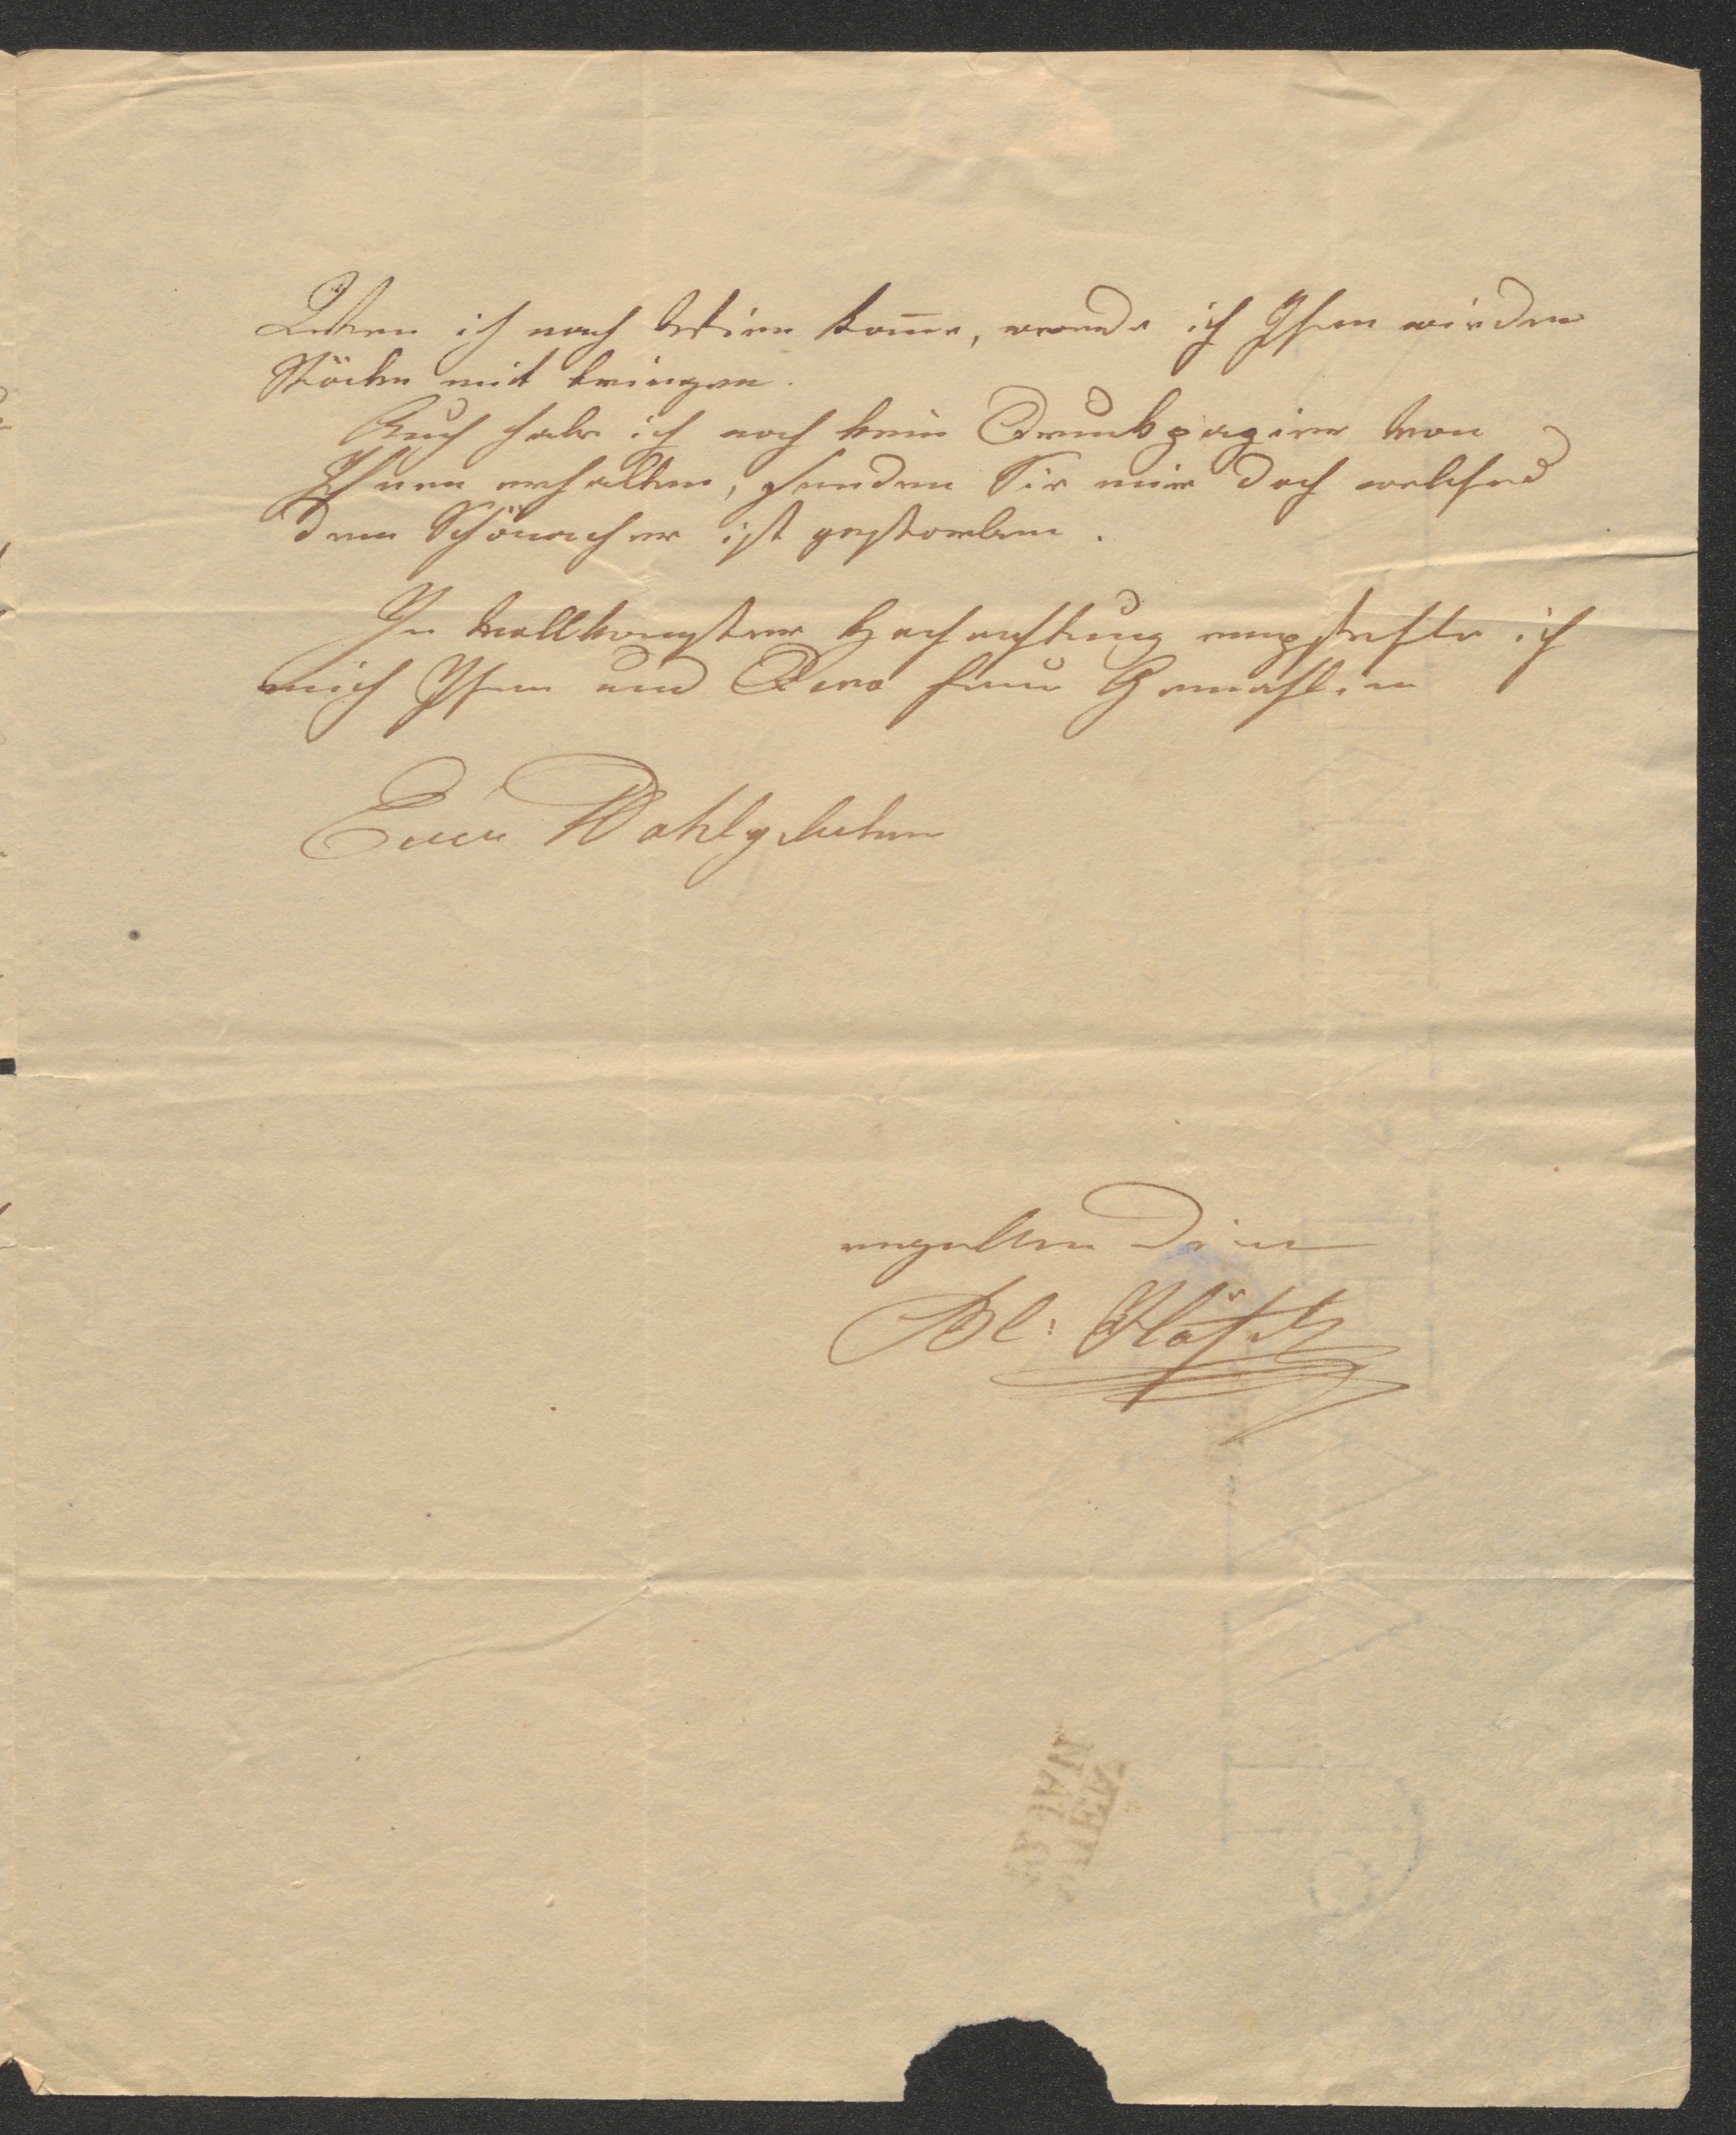 Wenn ich nach Wien kom̄e, werde ich Ihnen wieder
Stöcke mit bringen.
Auch habe ich noch kein Druckpapier von
Ihnen erhalten, senden Sie mir doch welches
denn Schönacher ist gestorben.
In vollkom̄ster Hochachtung empfehle ich
mich Ihnen und Dero Frau Gemahlin
Euer Wohlgeboren
ergebner Diener
Bl: Höfel